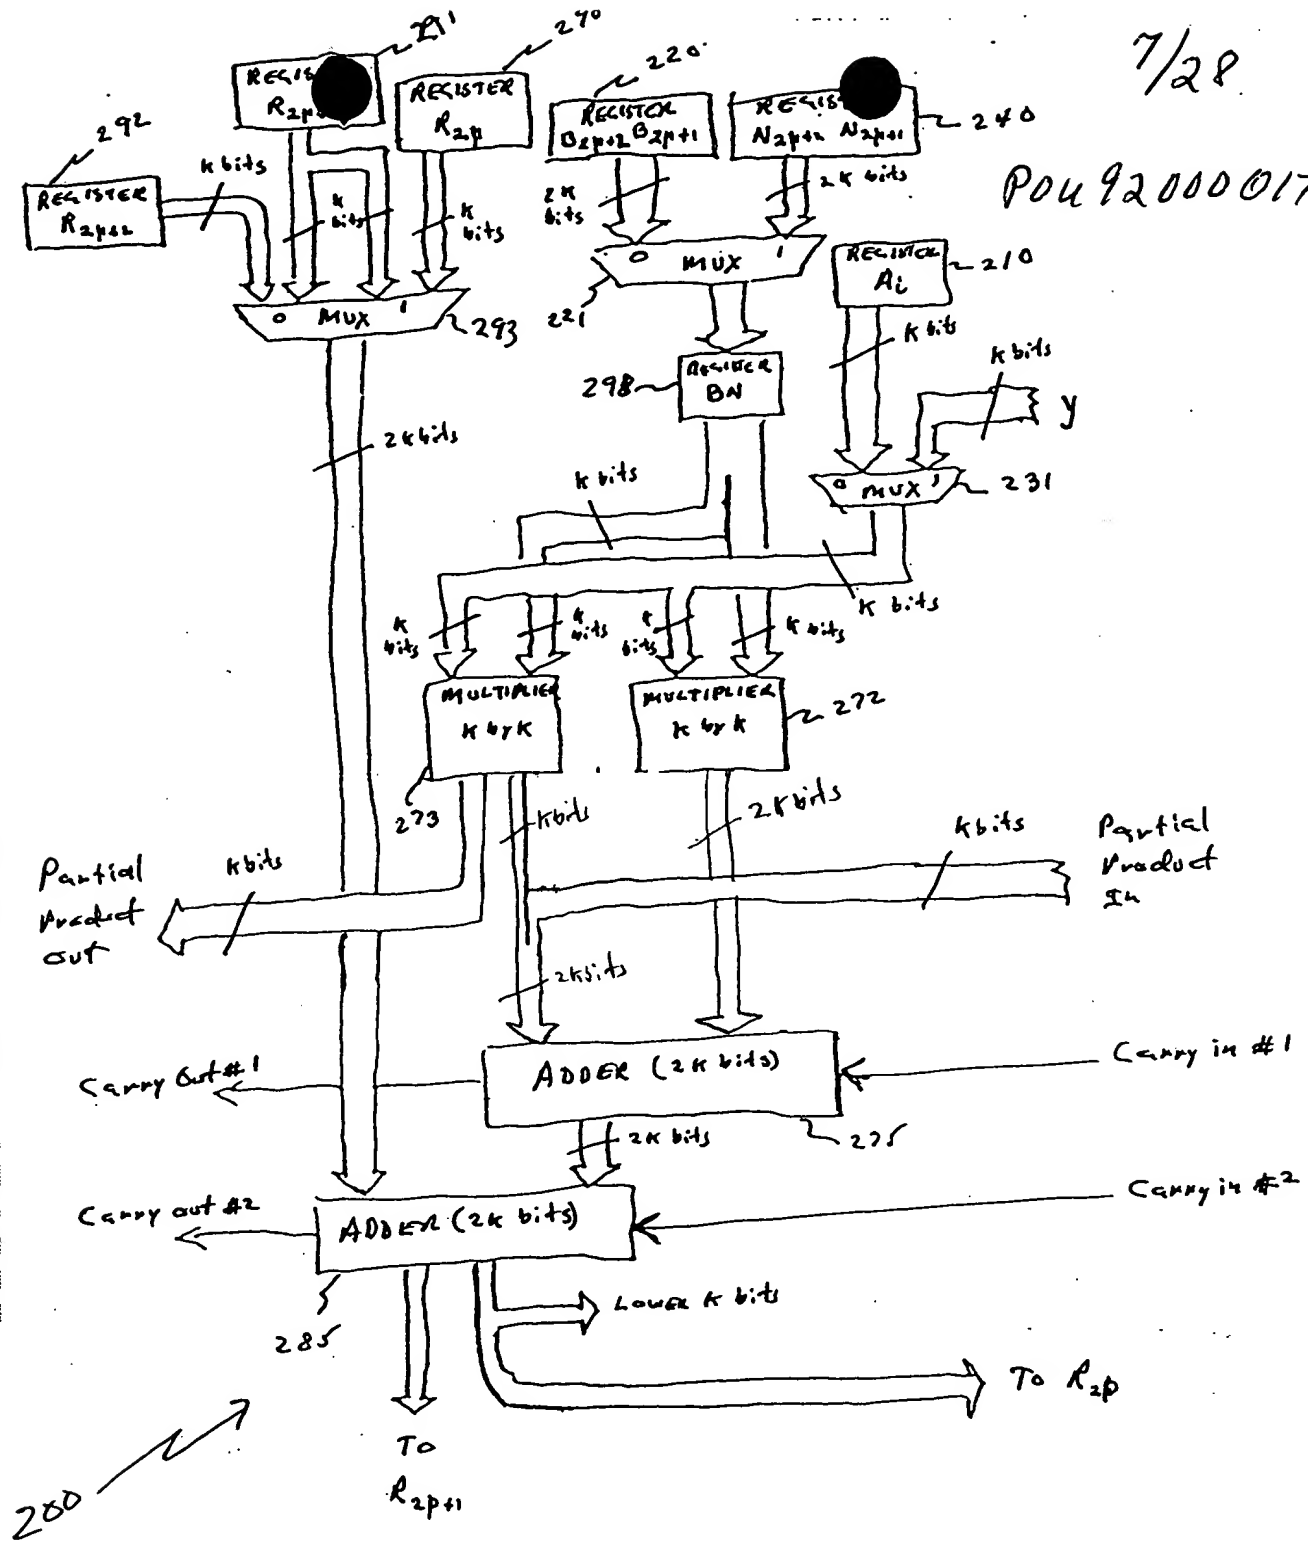 7/28
POU92000017
291
270
220
REGIS
R2p
REGISTER
R2p
REGISTER
B2p+2 B2p+1
REGIS
N2p+2 N2p+1
240
292
REGISTER
R2p+2
K bits
K
bits
K
bits
2K
bits
2K bits
0 MUX 1
221
0 MUX 1
293
REGISTER
Ai
210
K bits
K bits
y
298
REGISTER
BN
2K bits
0 MUX 1
231
K bits
K bits
K
bits
K
bits
K
bits
K bits
MULTIPLIER
K by K
273
MULTIPLIER
K by K
272
K bits
2K bits
K bits
Partial
Product
In
Partial
Product
out
K bits
2K bits
ADDER (2K bits)
275
Carry in #1
Carry Out #1
2K bits
Carry in #2
Carry out #2
ADDER (2K bits)
285
LOWER K bits
To R2p
To
R2p+1
200